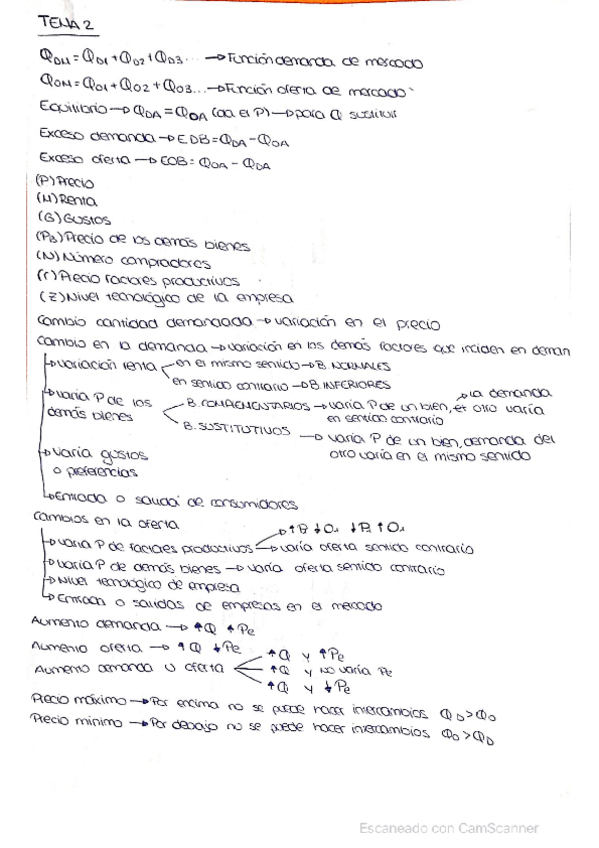 TEMA 2
QDM = QD1 + QD2 + QD3... → Función demanda de mercado
QOM = QO1 + QO2 + QO3... → Función oferta de mercado
Equilibrio → QDA = QOA (da el P) → para Q sustituir
Exceso demanda → EDB = QDA - QOA
Exceso oferta → EOB = QOA - QDA
(P) Precio
(M) Renta
(G) Gustos
(PB) Precio de los demás bienes
(N) Número compradores
(r) Precio factores productivos
(Z) Nivel tecnológico de la empresa
Cambio cantidad demandada → variación en el precio
Cambio en la demanda → variación en los demás factores que inciden en deman
↳ variación renta
en el mismo sentido → B. NORMALES
en sentido contrario → B. INFERIORES
↳ varía P de los demás bienes
B. COMPLEMENTARIOS → varía P de un bien, el otro varía
→ la demanda
en sentido contrario
B. SUSTITUTIVOS → varía P de un bien, demanda del
otro varía en el mismo sentido
↳ varía gustos
o preferencias
↳ Entrada o salida de consumidores
Cambios en la oferta
↳ varía P de factores productivos → varía oferta sentido contrario
↳ varía P de demás bienes → varía oferta sentido contrario
↳ Nivel tecnológico de empresa
↳ Entrada o salidas de empresas en el mercado
Aumento demanda → ↑Q ↑Pe
Aumento oferta → ↑Q ↓Pe
Aumento demanda u oferta
↑Q y ↑Pe
↑Q y no varía Pe
↑Q y ↓Pe
Precio máximo → Por encima no se puede hacer intercambios QD > QO
Precio mínimo → Por debajo no se puede hacer intercambios QO > QD
Escaneado con CamScanner